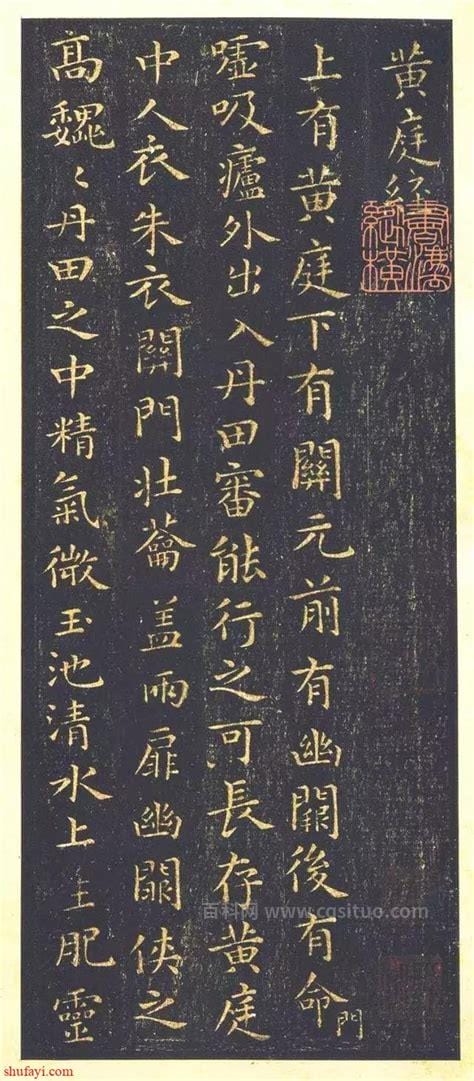 黄庭經
上有黄庭下有關元前有幽闕後有命門
嘘吸廬外出入丹田審能行之可長存黄庭
中人衣朱衣關門壮蘥盖兩扉幽闕侠之
高巍〻丹田之中精氣微玉池清水上生肥靈
百科网 www.cqsituo.com
shufayi.com